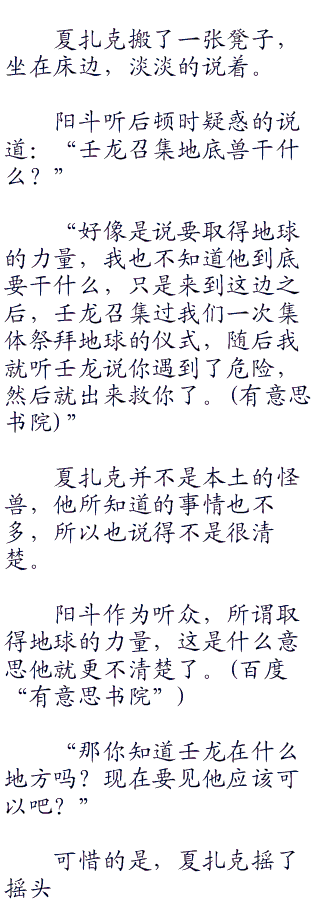 夏扎克搬了一张凳子，
坐在床边，淡淡的说着。
阳斗听后顿时疑惑的说
道：“壬龙召集地底兽干什
么？”
“好像是说要取得地球
的力量，我也不知道他到底
要干什么，只是来到这边之
后，壬龙召集过我们一次集
体祭拜地球的仪式，随后我
就听壬龙说你遇到了危险，
然后就出来救你了。(有意思
书院)”
夏扎克并不是本土的怪
兽，他所知道的事情也不
多，所以也说得不是很清
楚。
阳斗作为听众，所谓取
得地球的力量，这是什么意
思他就更不清楚了。(百度
“有意思书院”)
“那你知道壬龙在什么
地方吗？现在要见他应该可
以吧？”
可惜的是，夏扎克摇了
摇头